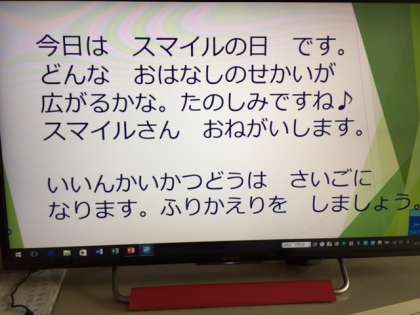 今日は　スマイルの日　です。
どんな　おはなしのせかいが
広がるかな。たのしみですね♪
スマイルさん　おねがいします。
いいんかいかつどうは　さいごに
なります。ふりかえりを　しましょう。